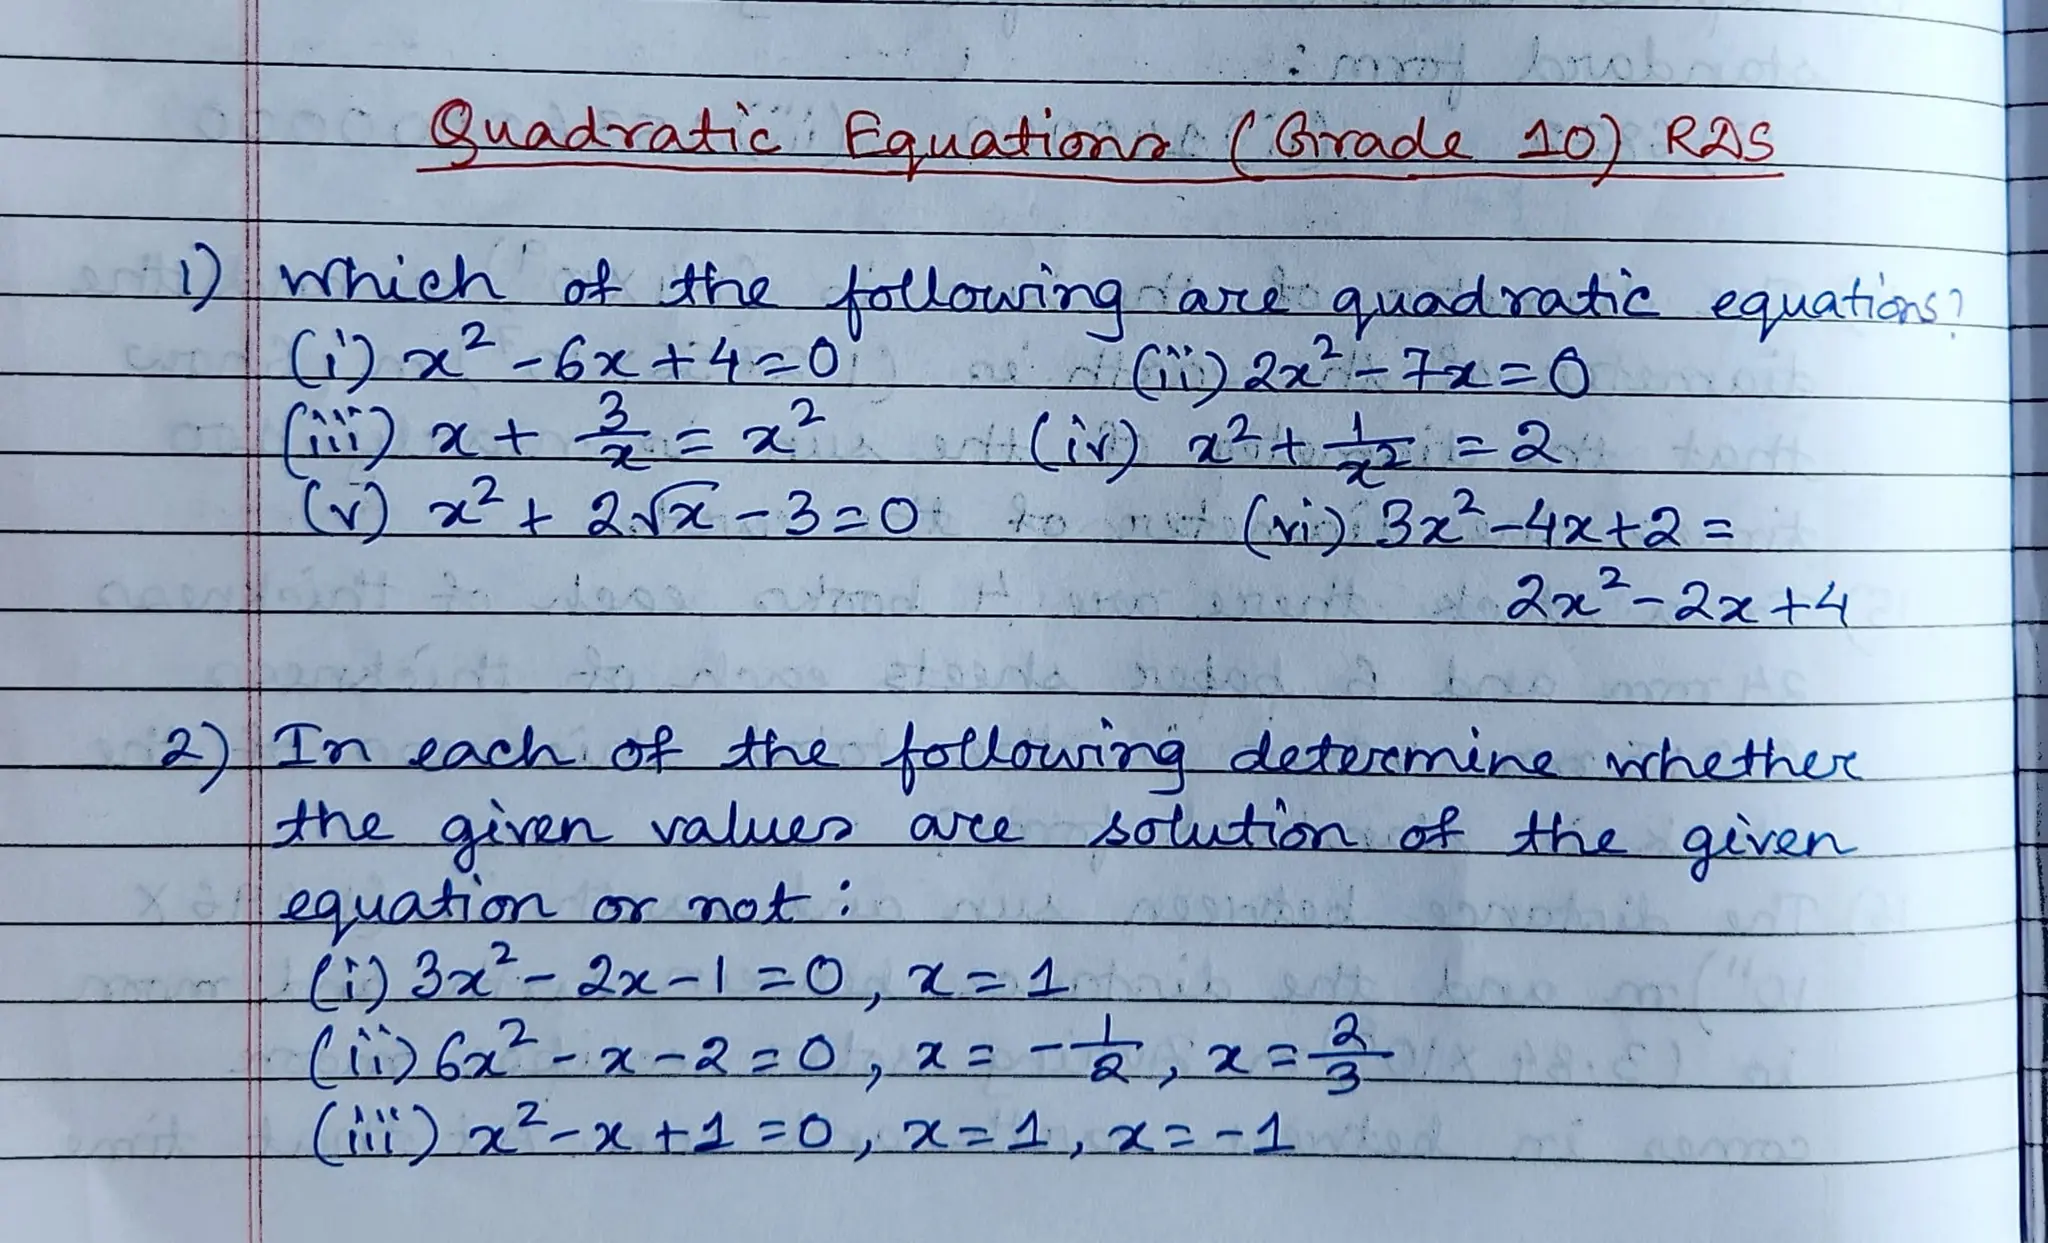 Quadratic Equations (Grade 10) RDS
1) Which of the following are quadratic equations?
(i) x² - 6x + 4 = 0 (ii) 2x² - 7x = 0
(iii) x + 3/x = x² (iv) x² + 1/x² = 2
(v) x² + 2√x - 3 = 0 (vi) 3x² - 4x + 2 =
2x² - 2x + 4
2) In each of the following determine whether
the given values are solution of the given
equation or not :
(i) 3x² - 2x - 1 = 0, x = 1
(ii) 6x² - x - 2 = 0, x = -1/2, x = 2/3
(iii) x² - x + 1 = 0, x = 1, x = -1